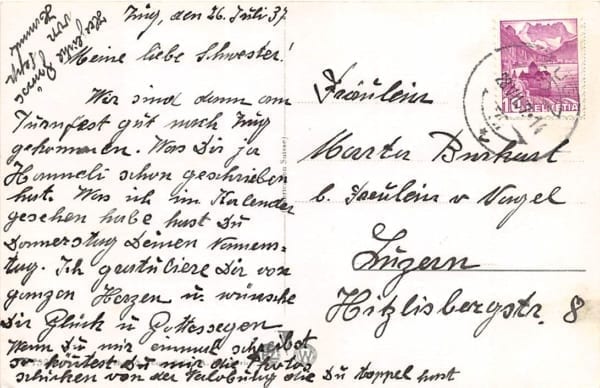 Zug, den 26. Juli 37.
Meine liebe Schwester!
Wir sind dann am
Turnfest gut nach Zug
gekommen. Was Dir ja
Hanneli schon geschrieben
hat. Was ich im Kalender
gesehen habe hast Du
Donnerstag Deinen Namens-
tag. Ich gratuliere Dir von
ganzen Herzen u. wünsche
Dir Glück u Gottessegen
Wenn Du mir einmal schreibst
so könntest Du mir die Photos
schicken von der Verlobung die Du doppel hast
von
Fräulein
Marta Burkart
b. Fräulein v Nagel
Luzern
Hitzlisbergstr. 8
HELVETIA